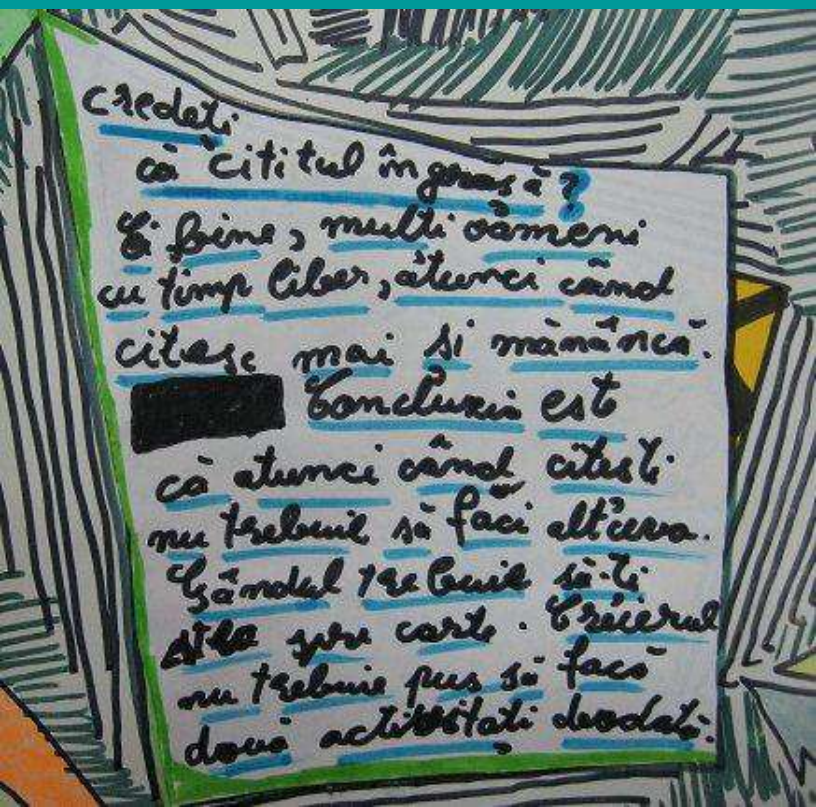 credeți
că cititul îngrașă?
Ei bine, mulți oameni
cu timp liber, atunci când
citesc mai și mănâncă.
Concluzia este
că atunci când citești
nu trebuie să faci altceva.
Gândul trebuie să-ți
stea spre carte. Creierul
nu trebuie pus să facă
două activități deodată.